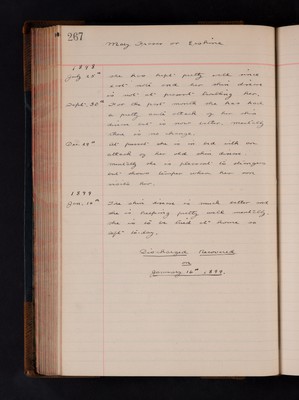 267
Mary Brown or Erskine
1898
July 25th She has kept pretty well since
last note and her skin disease
is not at present troubling her.
Sept. 30th For the past month she has had
a pretty acute attack of her skin
disease but is now better, mentally
there is no change.
Dec. 29th At present she is in bed with an
attack of her old skin disease
mentally she is pleasant to strangers
but shows temper when her son
visits her.
1899
Jan. 14th The skin disease is much better and
she is keeping pretty well mentally.
She is to be tried at home &
left to-day.
Discharged Recovered
on
January 14th 1899.